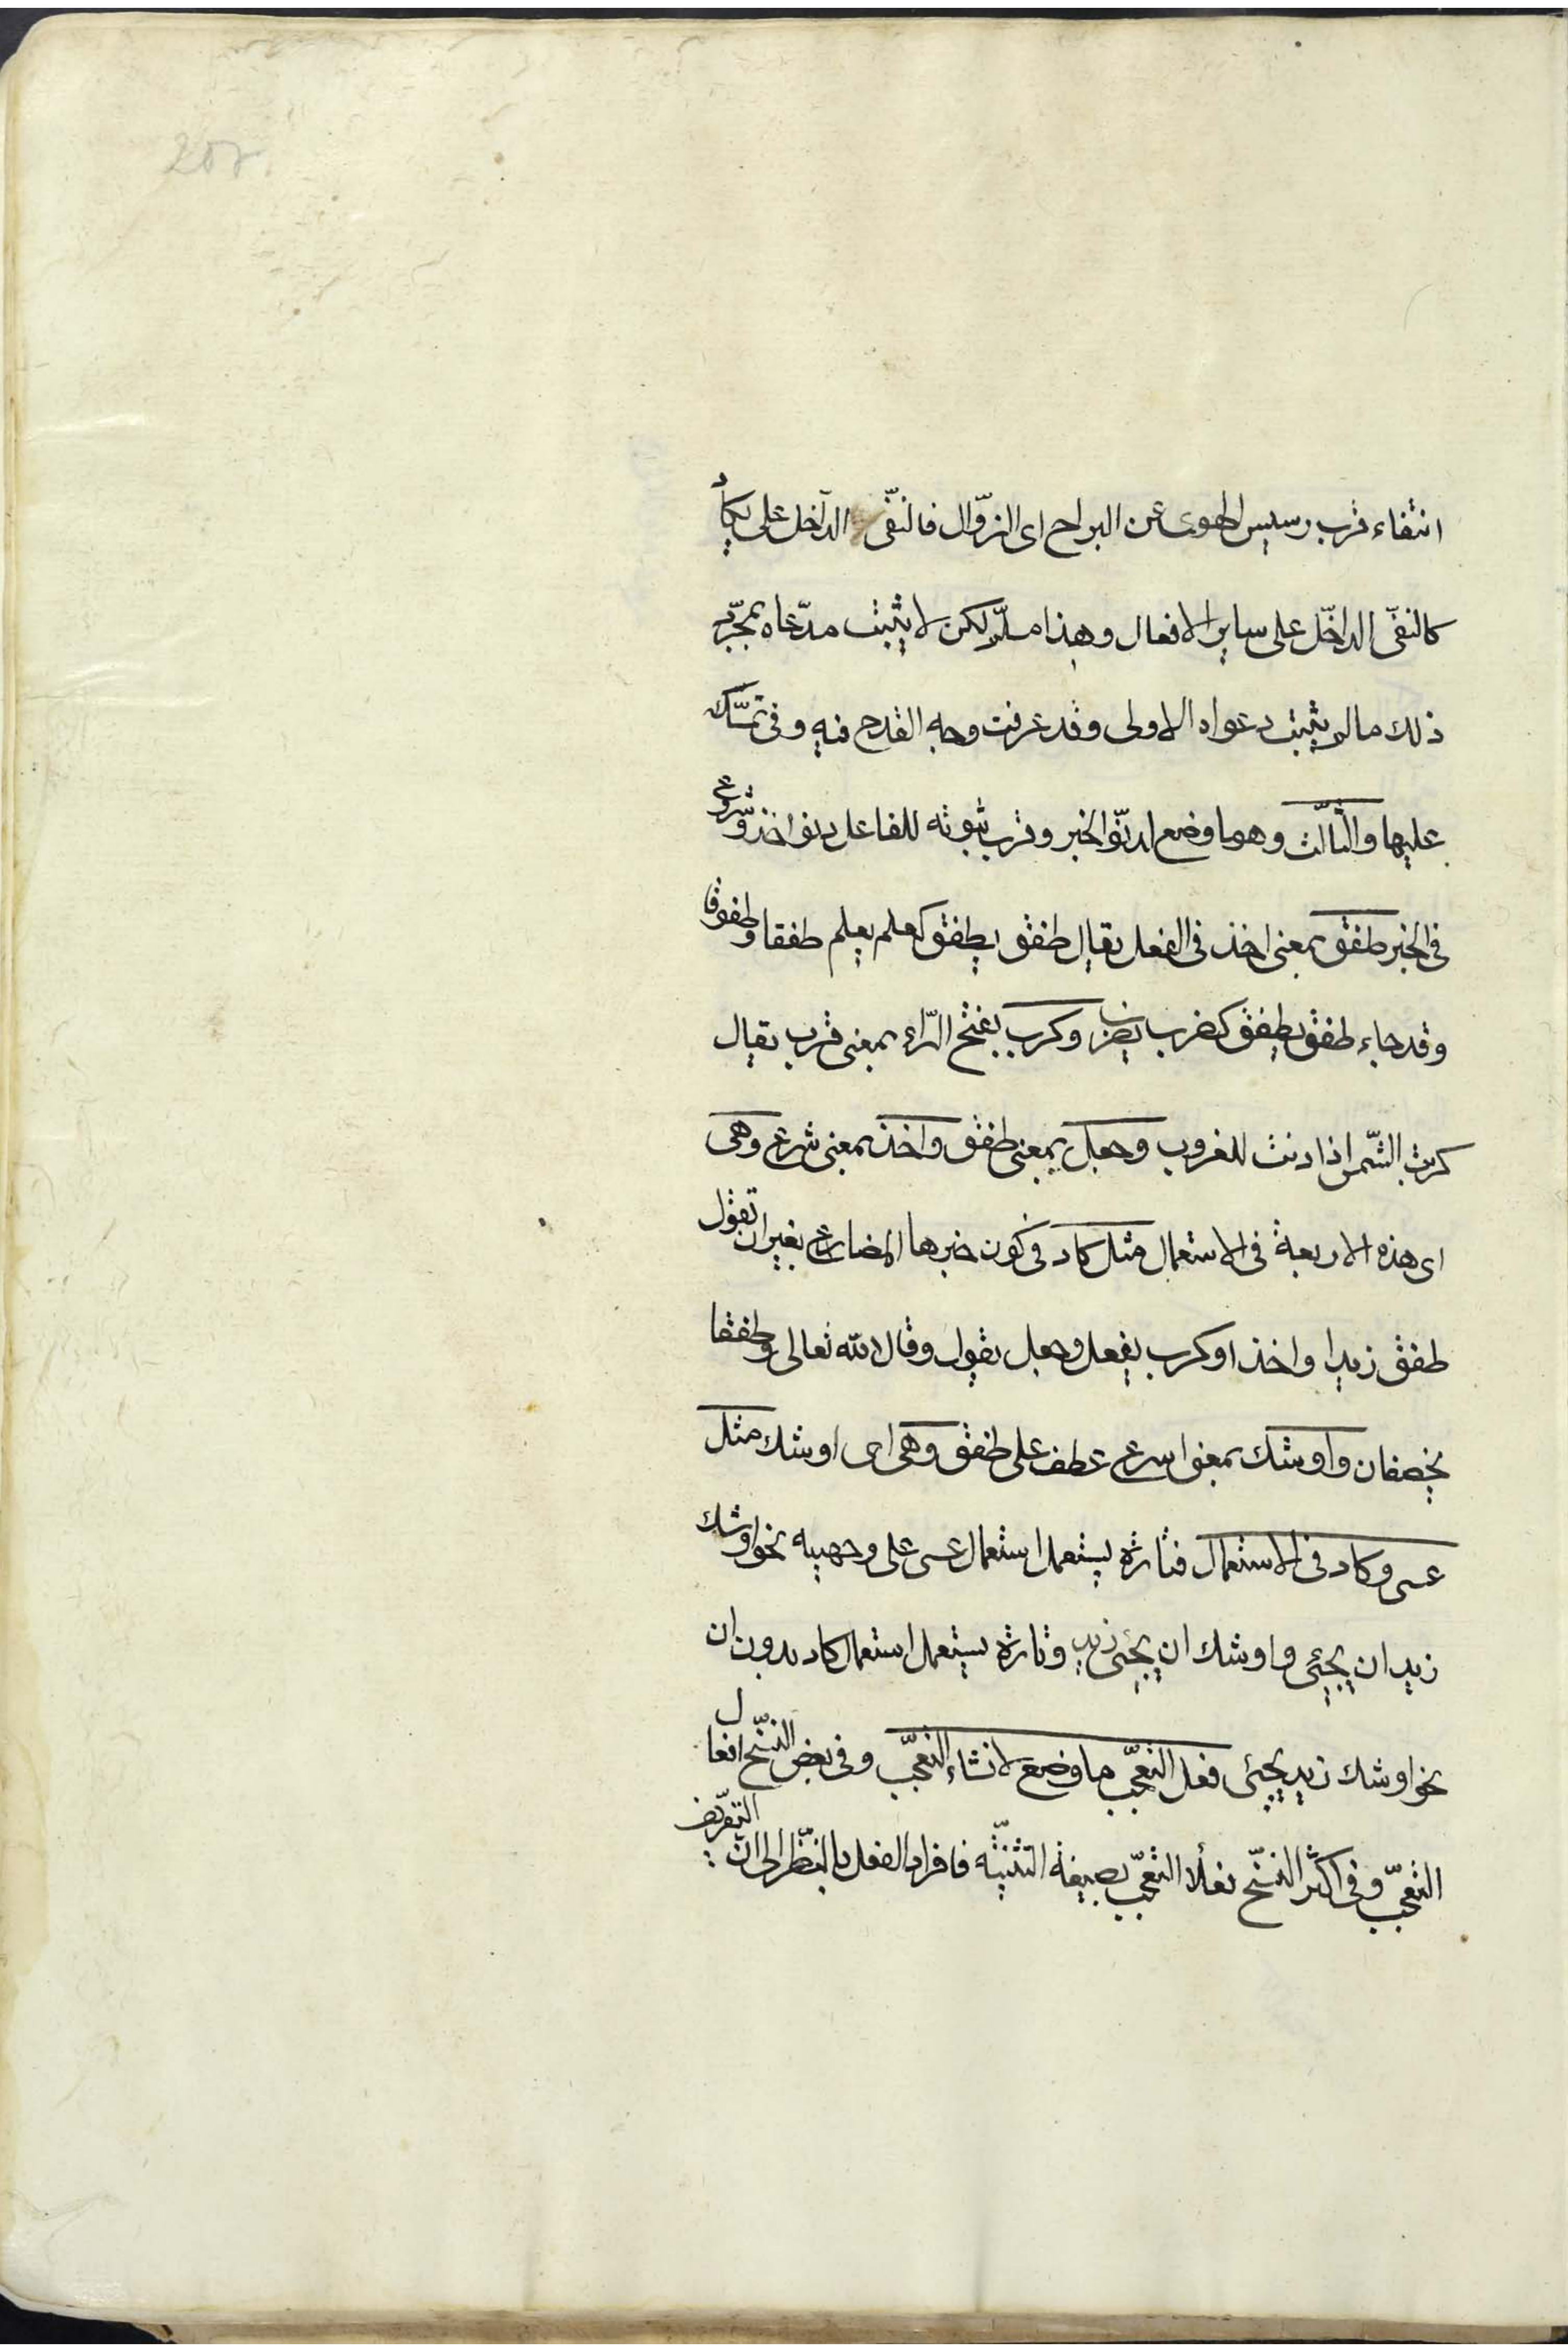 انتفاء قرب رسيس الهوى عن البراح اى الزّوال فالنّفى الدّاخل على يكاد
كالنفى الداخل على ساير الافعال وهذا مسلّم لكن لا يثبت مدّعاه بمجرّد
ذلك ما لم يثبت دعواه الاولى وقد عرفت وجه القدح فيه وفى تمسّك
عليها والثالث وهو ما وضع لدنوّ الخبر وقرب ثبوته للفاعل دنو اخذ وشروع
فى الخبر طفق بمعنى اخذ فى الفعل يقال طفق يطفق كعلم يعلم طفقا وطفوقا
وقد جاء طفق يطفق كضرب يضرب وكرب بفتح الرّاء بمعنى قرب يقال
كربت الشّمس اذا دنت للغروب وجعل بمعنى طفق واخذ بمعنى شرع وهى
اى هذه الاربعة فى الاستعمال مثل كاد فى كون خبرها المضارع بغير ان تقول
طفق زيد او اخذ او كرب يفعل وجعل يقول وقال الله تعالى وطفقا
يخصفان واوشك بمعنى اسرع عطف على طفق وهى اى اوشك مثل
عسى وكاد فى الاستعمال فتارة يستعمل استعمال عسى على وجهيه نحو اوشك
زيد ان يجئ واوشك ان يجئ زيد وتارة يستعمل استعمال كاد بدون ان
نحو اوشك زيد يجئ فعل التعجّب ما وضع لانشاء التعجّب وفى بعض النسّخ افعال
التعجّب وفى اكثر النسّخ فعلا التعجّب بصيغة التثنيّة فافراد الفعل بالنّظر الى انّ التعريف